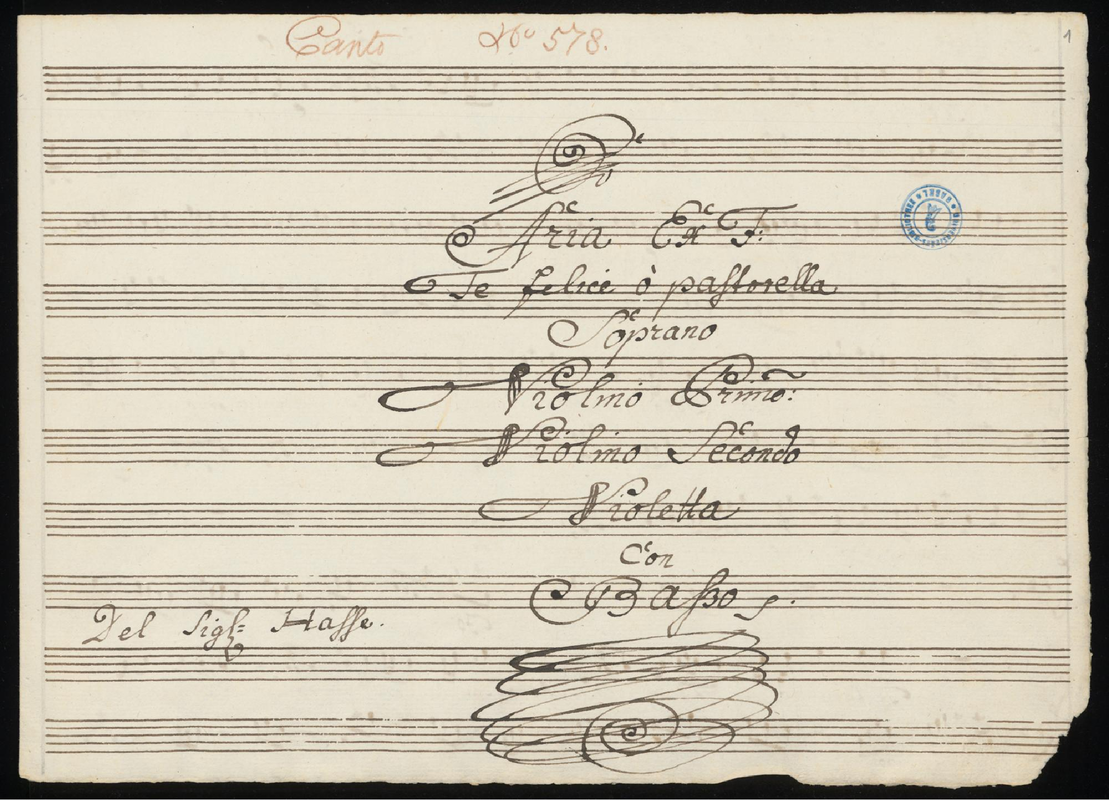 Canto No 578.
1
Aria Ex F:
Te felice ò pastorella
Soprano
Violino Primo:
Violino Secondo
Violetta
Con
Basso
Del Sigl: Hasse.